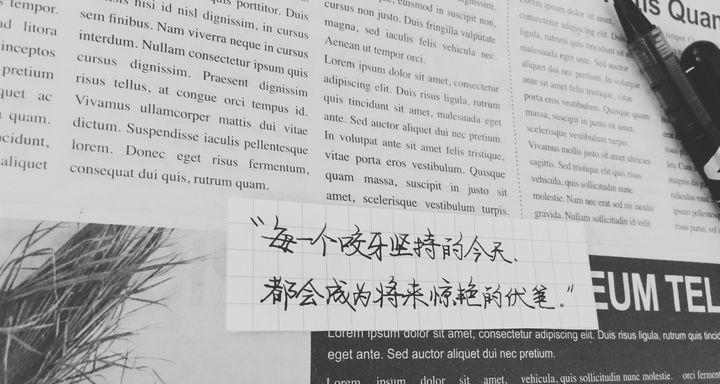 porttitor. Duis
nisi id nisl dignissim, in cursus
sem finibus. Nam viverra neque in cursus
interdum. Nullam consectetur ipsum quis
cursus dignissim. Praesent dignissim
risus tellus, at congue orci tempus id.
Vivamus ullamcorper mattis dui vitae
dictum. Suspendisse iaculis pellentesque
lorem. Donec eget risus fermentum,
consequat dui quis, rutrum quam.
tempor.
ad litora
inceptos
pretium
quet ac
quam.
aliquet
euismod in suscipit non,
cursus non justo. Duis fringilla vulputate
magna, sed iaculis felis vehicula nec.
Aenean ut tempor orci.
Lorem ipsum dolor sit amet, consectetur
adipiscing elit. Duis risus ligula, rutrum
quis tincidunt sit amet, malesuada eget
ante. Sed auctor aliquet dui nec pretium.
In volutpat ante sit amet felis tristique,
vitae porta eros vestibulum. Quisque
quam massa, suscipit in justo sit
amet, scelerisque vestibulum turpis.
Lorem ipsum dolor sit amet,
consectetur adipiscing elit. Duis
ligula, rutrum quis tincidunt sit
malesuada eget ante. Sed auctor
aliquet dui nec pretium. In volutpat
ante sit amet felis tristique, vitae
porta eros vestibulum. Quisque quam
massa, suscipit in justo sit amet,
scelerisque vestibulum turpis.
Vivamus mollis justo sit amet ultricies
sagittis. Sed tristique elit quis risus
vehicula, quis sollicitudin nunc
molestie. Nam nec erat sed mi iaculis
gravida. Nullam sollicitudin id velit
Quam
“每一个咬牙坚持的今天、
都会成为将来惊艳的伏笔。”
EUM TEL
Lorem ipsum dolor sit amet, consectetur adipiscing elit. Duis risus ligula, rutrum quis
eget ante. Sed auctor aliquet dui nec pretium.
Lorem ipsum dolor sit amet, vehicula, quis sollicitudin nunc molestie. orci